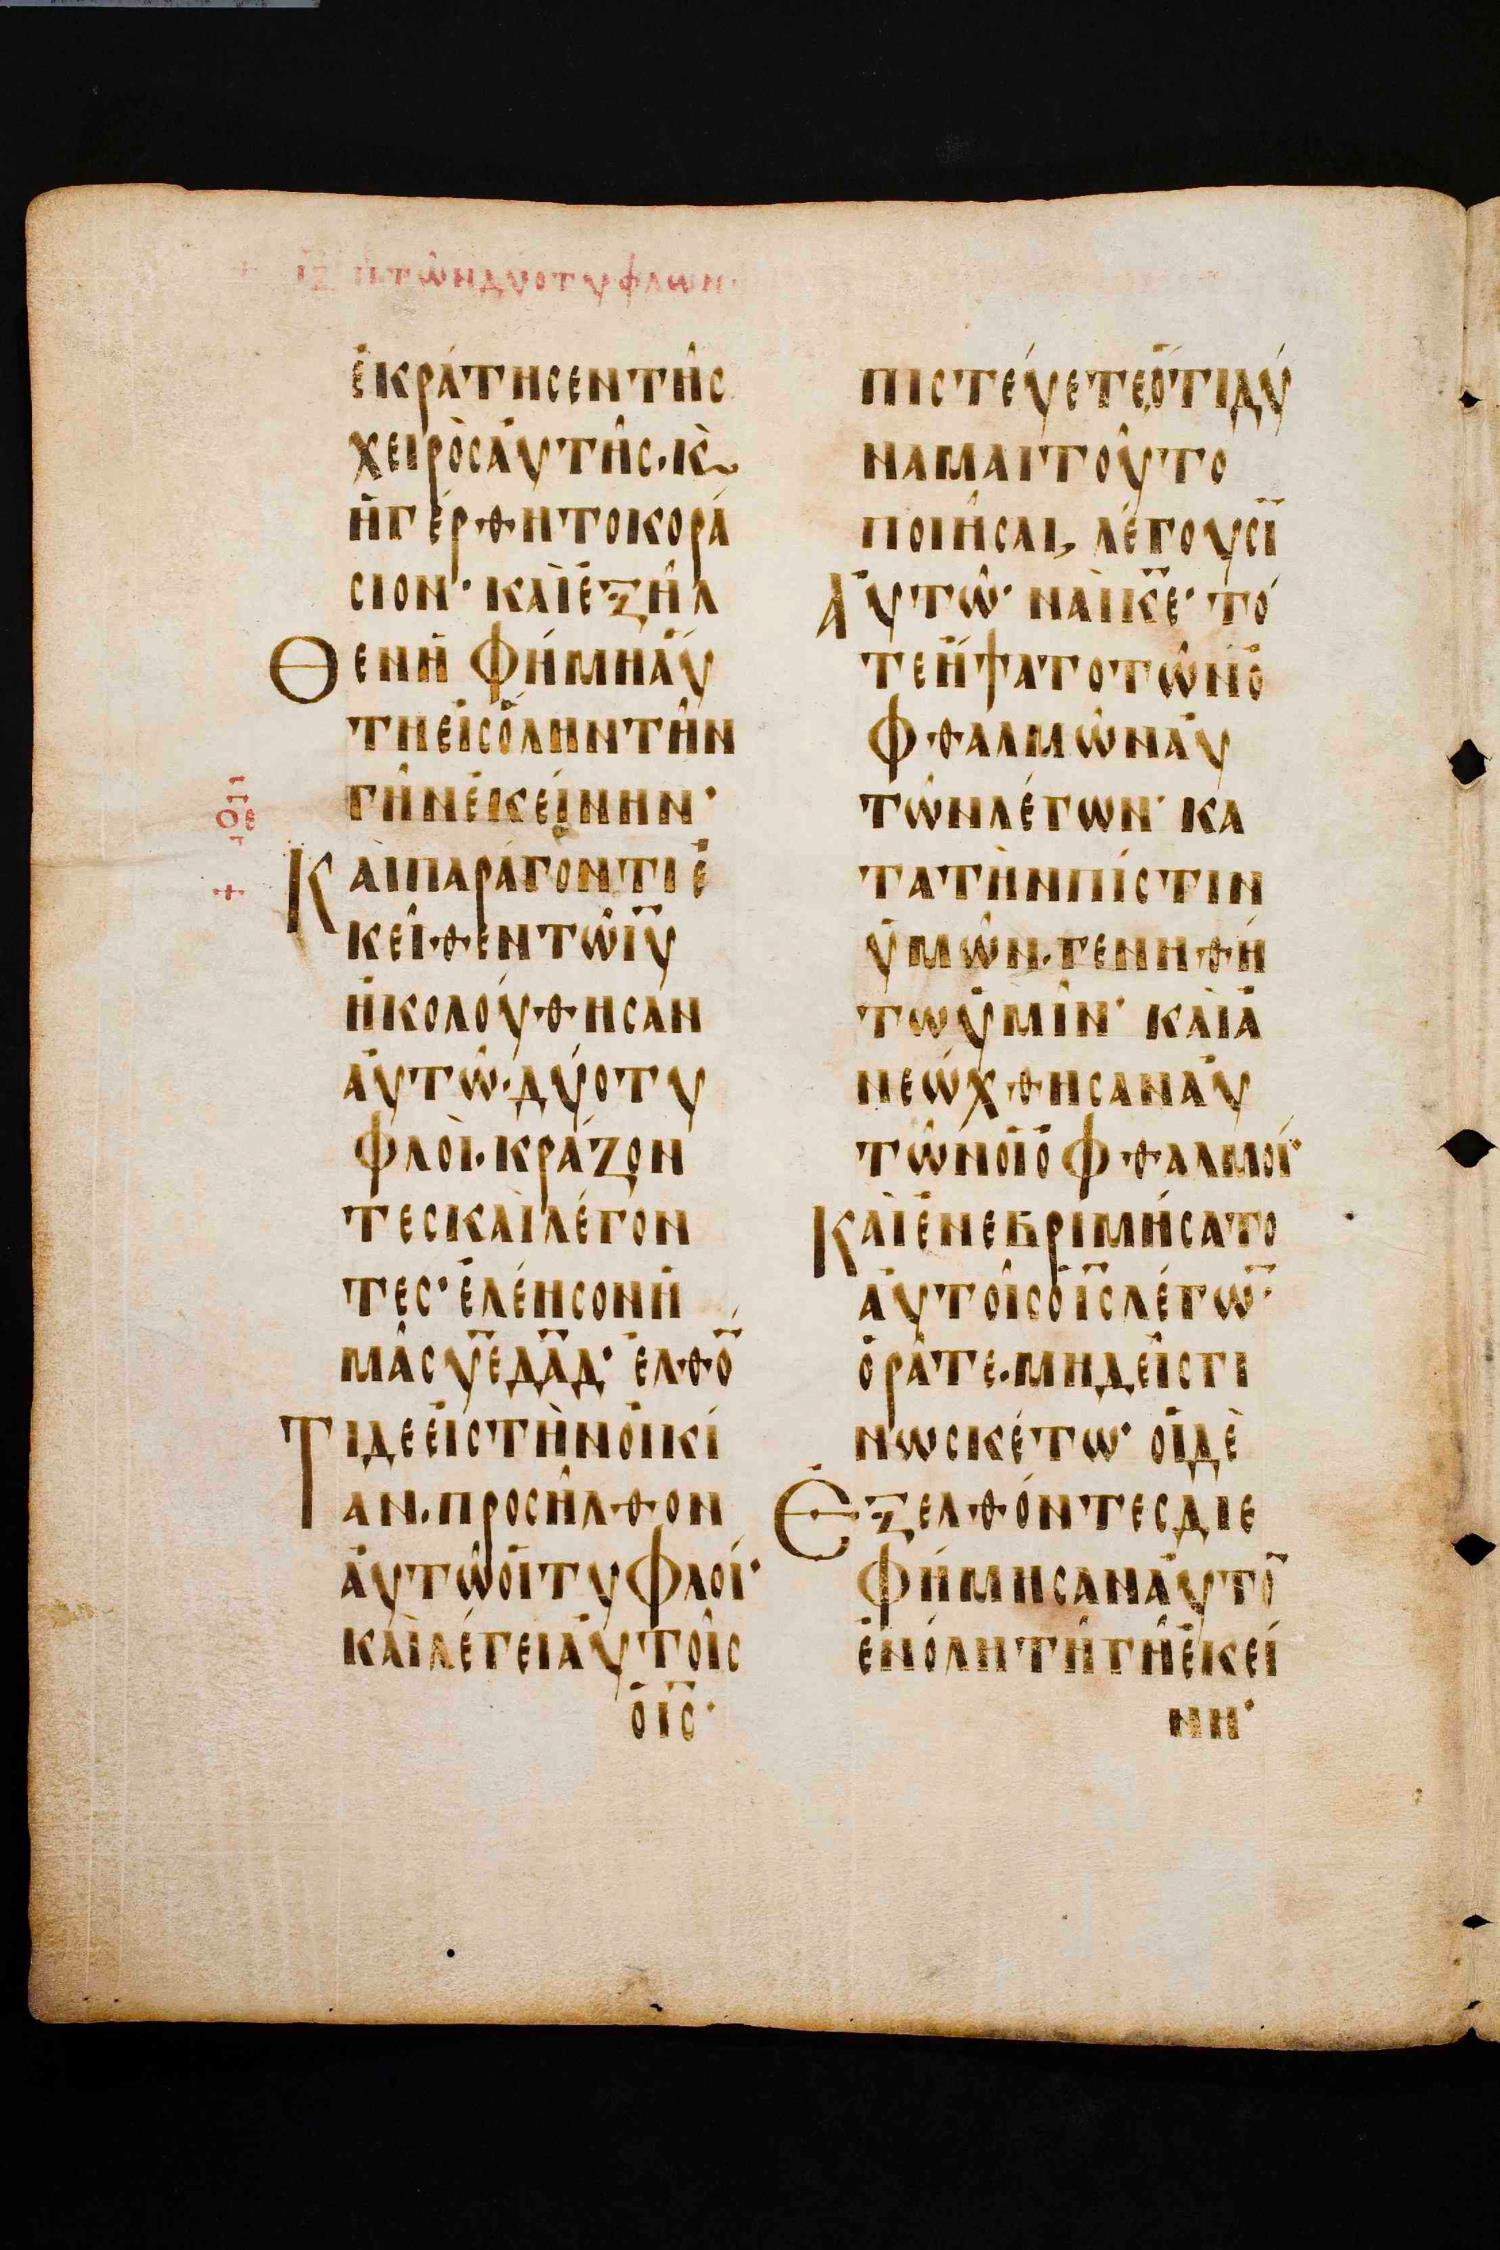 ιζ π τῶν δύο τυφλων·
ἐκράτησεν τῆς
χειρὸσ ἀυτῆς· κ̀
ἠγέρθη τὸ κορά
σιον· καὶ ἐξῆλ
Θεν ἡ φήμη ἀύ
τη εἰσ ὅλην τὴν
γῆν ἐκείνην·
οε
Καὶ παράγοντι ἐ
κεῖθεν τῶ ῙῩ
ἠκολούθησαν
ἀυτῶ· δύο τυ
φλοὶ· κράζον
τες καὶ λέγον
τες· ἐλέησον ἡ
μᾶς ῩΕ ΔᾹΔ· ἐλθο̅
Τι δε εἰς τὴν οἰκί
αν· προσῆλθον
ἀυτῶ οἱ τυφλοί·
καὶ λέγει ἀυτοῖς
ὁ ῙϹ·
πιστέυετε ὅτι δύ
ναμαι τοῦτο
ποιῆσαι, λέγουσϊ
Ἀυτῶ· ναὶ ΚΕ̅· τό
τε ἥψατο τῶν ὀ
φθαλμῶν ἀυ
τῶν λέγων· κα
τὰ τὴν πίστιν
ὑμῶν· γενηθή
τω ὑμῖν· καὶ ἀ
νεώχθησαν ἀυ
τῶν οἱ ὀφθαλμοί
Καὶ ἐνεβριμήσατο
ἀυτοῖσ ὁ ῙϹ λέγω̅·
ὁρᾶτε· μηδεὶς γι
νωσκέτω· οἱ δὲ
Ἐξελθόντες διε
φήμησαν ἀυτο̅
ἐν ὅλη τῆ γῆ ἐκεί
νη·